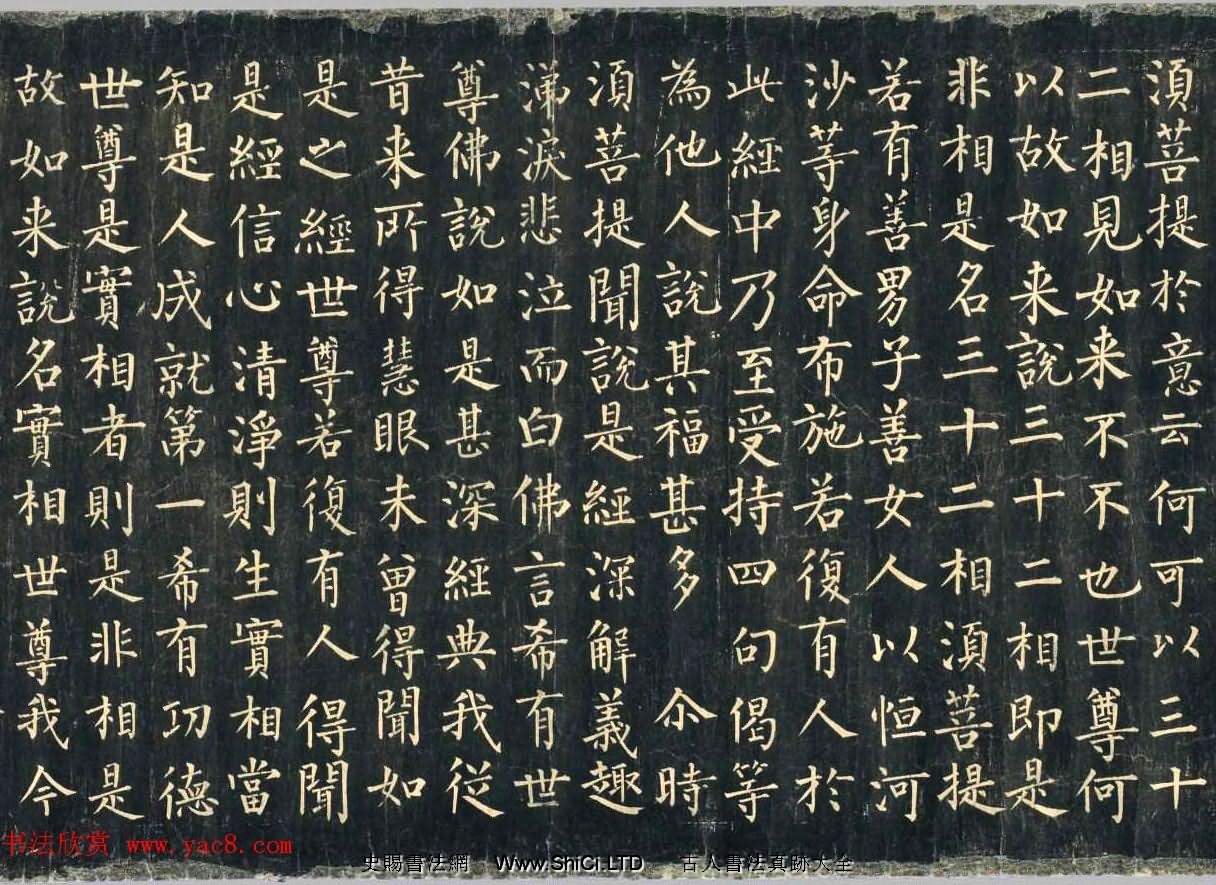 須菩提於意云何可以三十
二相見如来不不也世尊何
以故如来說三十二相即是
非相是名三十二相須菩提
若有善男子善女人以恒河
沙等身命布施若復有人於
此經中乃至受持四句偈等
為他人說其福甚多尒時
須菩提聞說是經深解義趣
涕淚悲泣而白佛言希有世
尊佛說如是甚深經典我從
昔来所得慧眼未曾得聞如
是之經世尊若復有人得聞
是經信心清淨則生實相當
知是人成就第一希有功德
世尊是實相者則是非相是
故如来說名實相世尊我今
书法欣赏 www.yac8.com
史賜書法網 Www.ShiCi.LTD 古人書法真跡大全